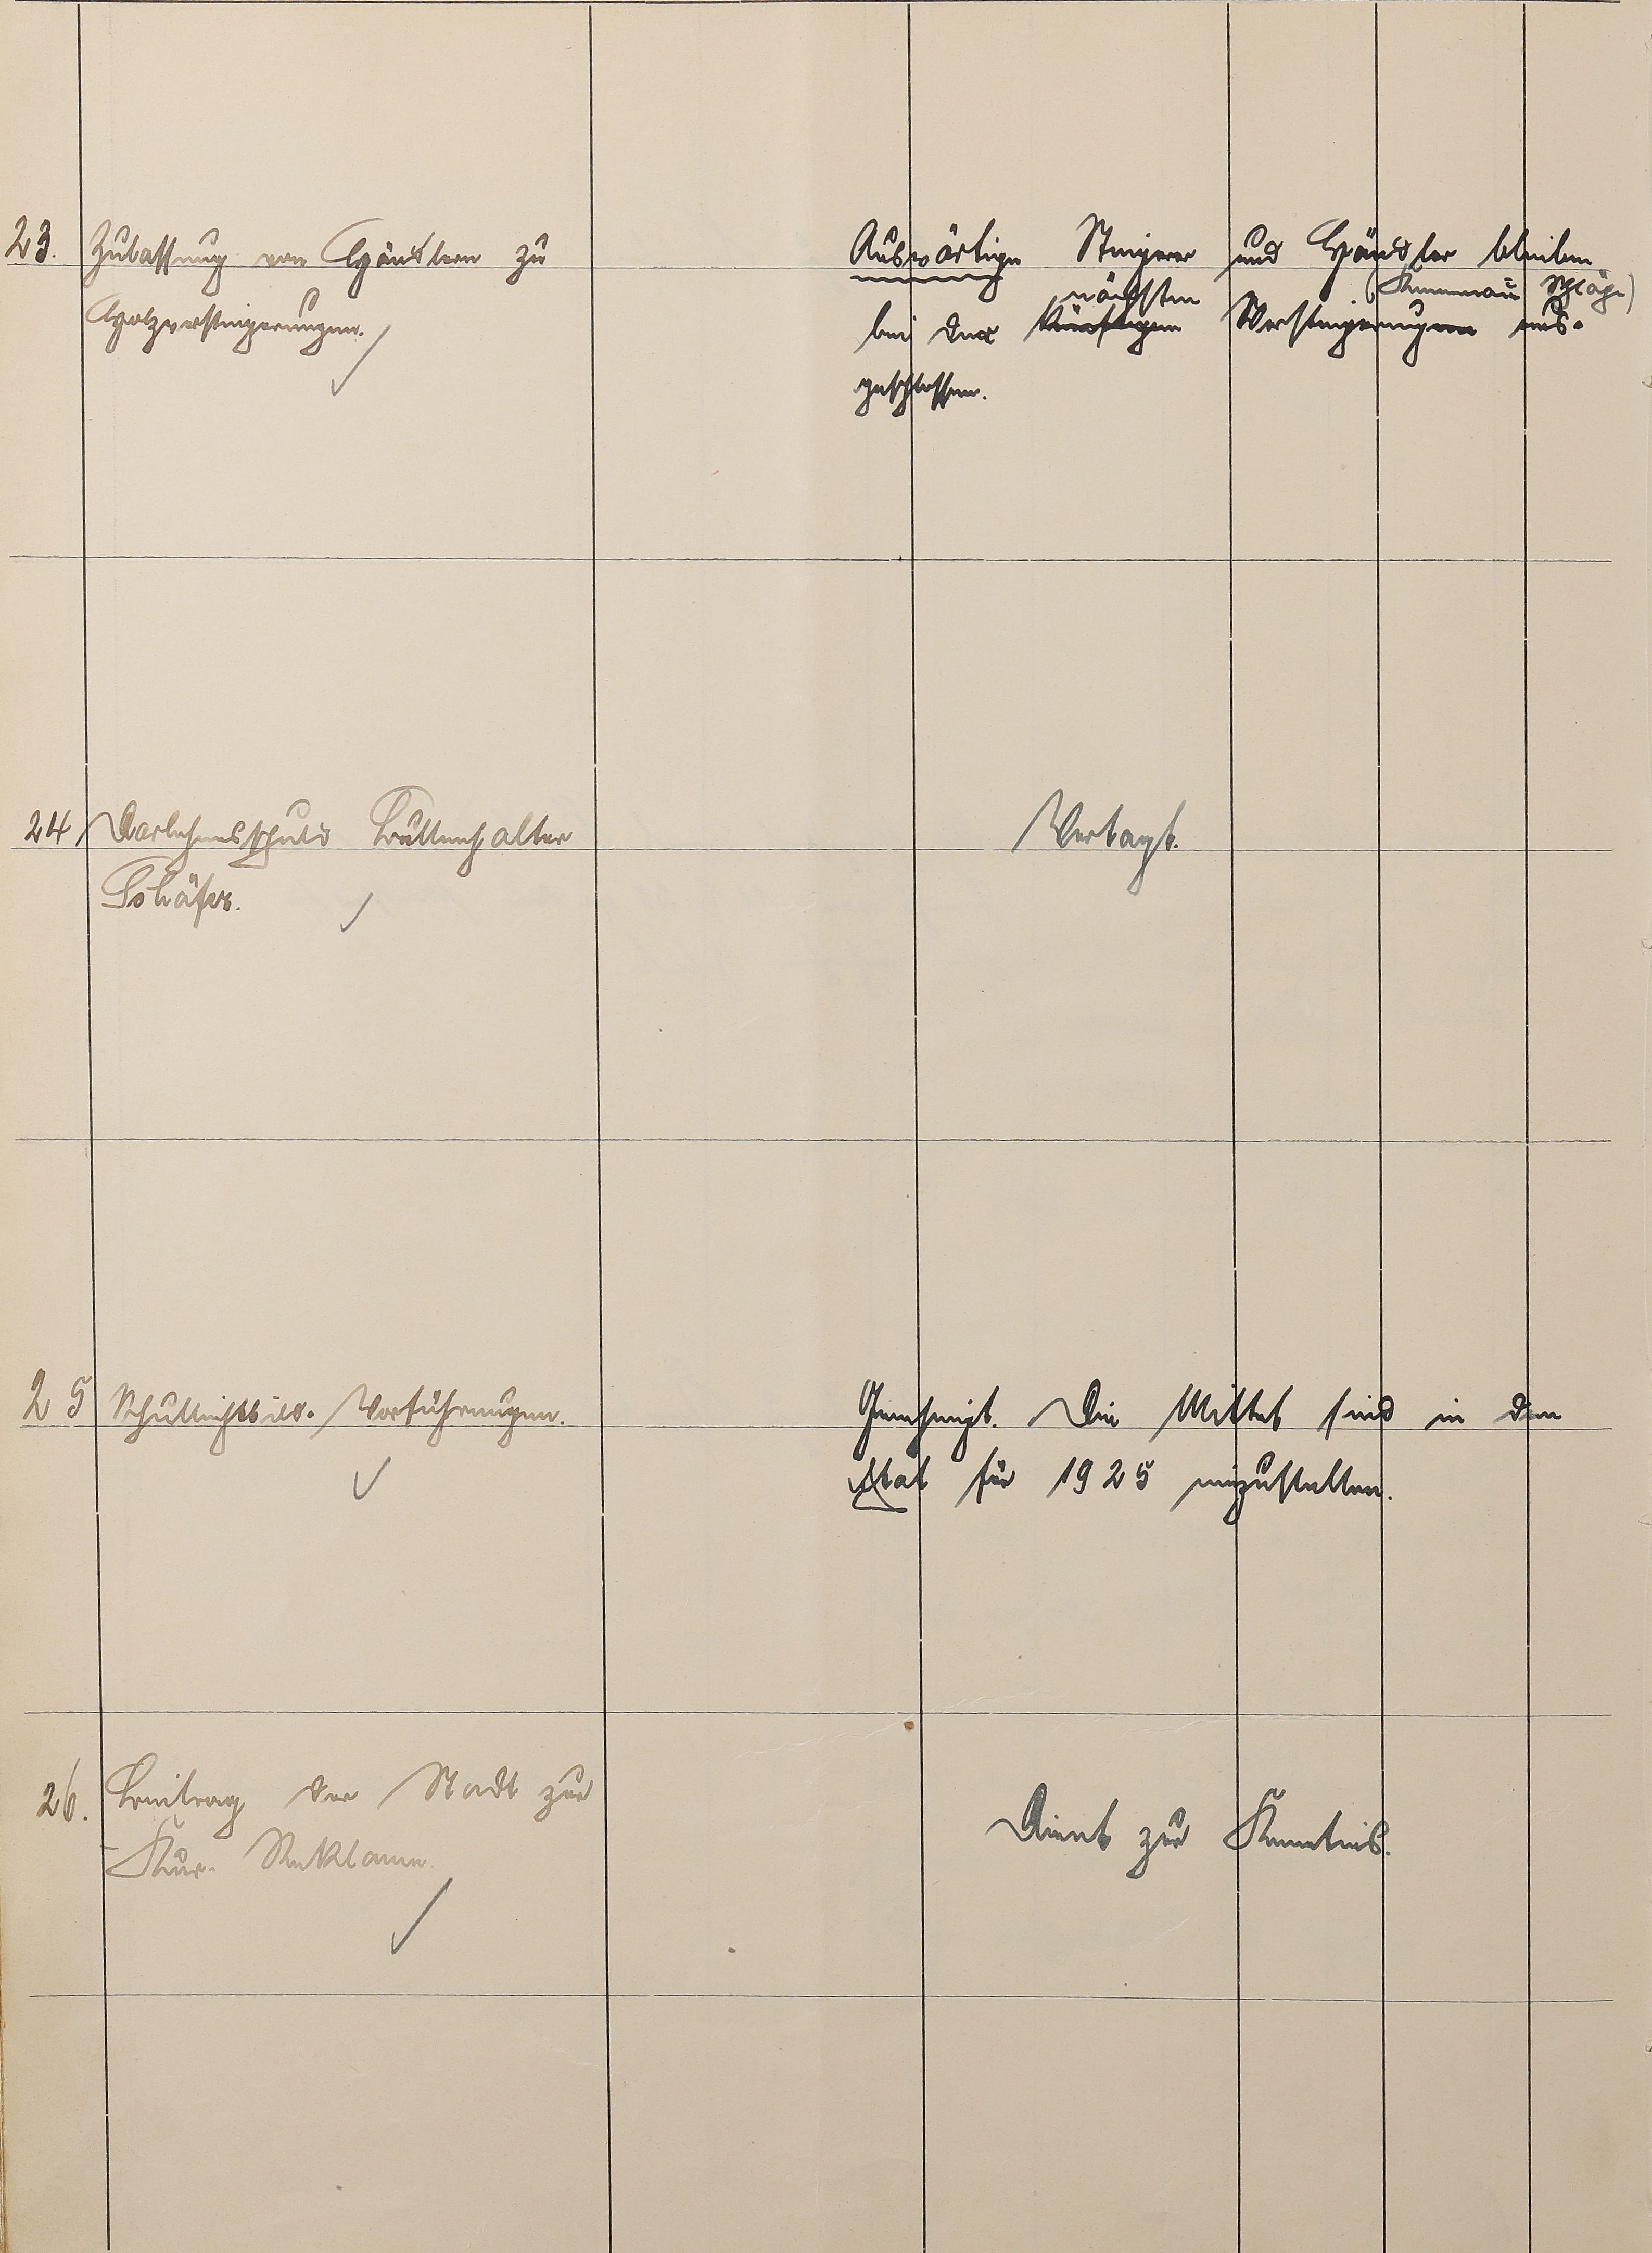 23. Zulassung von Händlern zu
Holzversteigerungen.
Auswärtige Steigerer und Händler bleiben
nächsten
bei der künftigen Versteigerungen aus-
geschlossen.
24 Darlehensschuld
Schäfer.
Vertagt.
25 Schullichtbild-Vorführungen.
Genehmigt. Die Mittel sind in den
Etat für 1925 einzustellen.
26. Beitrag der Stadt zur
Kur-Reklame.
Dient zur Kenntnis.